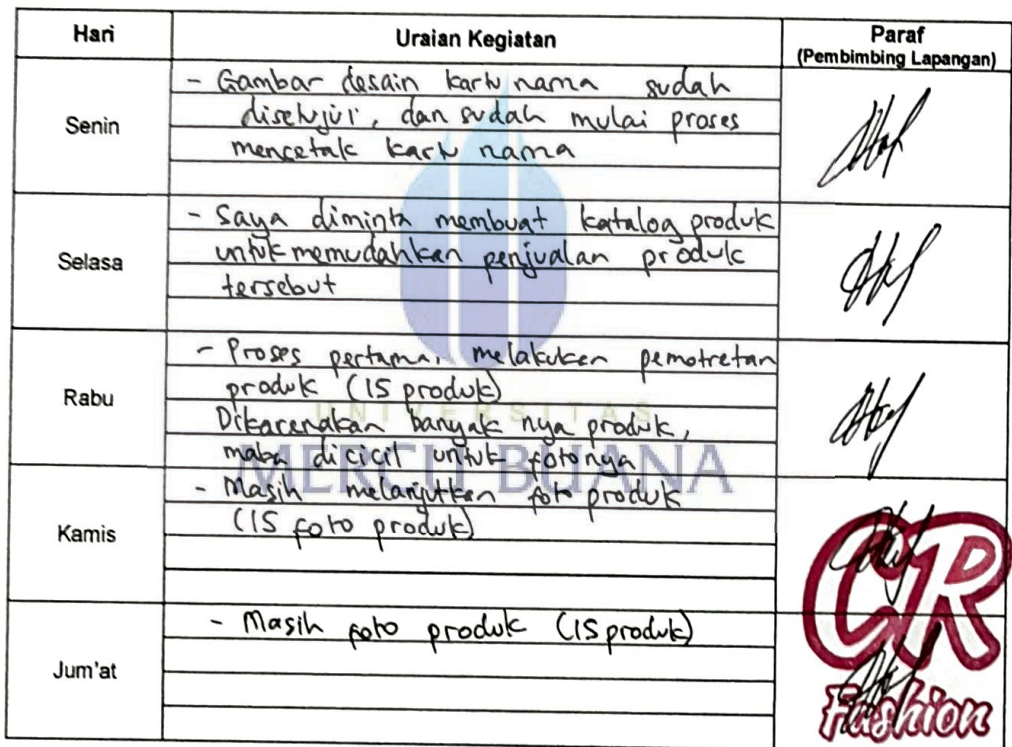 Hari
Uraian Kegiatan
Paraf
(Pembimbing Lapangan)
Senin
- Gambar desain kartu nama sudah
disetujui, dan sudah mulai proses
mencetak kartu nama
Selasa
- Saya diminta membuat katalog produk
untuk memudahkan penjualan produk
tersebut
Rabu
- Proses pertama, melakukan pemotretan
produk (15 produk)
Dikarenakan banyak nya produk,
maka dicicil untuk fotonya
Kamis
- Masih melanjutkan foto produk
(15 foto produk)
Jum'at
- Masih foto produk (15 produk)
UNIVERSITAS
MERCU BUANA
CR
Fashion